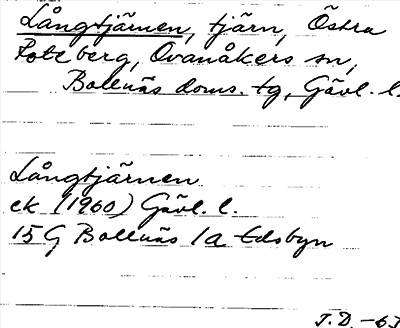 Långtjärnen, tjärn, Östra
Roteberg, Ovanåkers sn,
Bollnäs doms. tg, Gävl. l.
Långtjärnen
ek (1960) Gävl. l.
15G Bollnäs 1a Edsbyn
T.D. -63